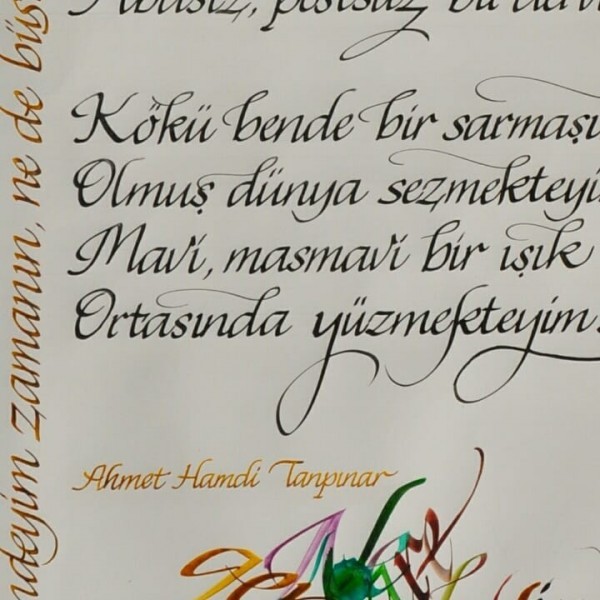 Kökü bende bir sarmaşı
Olmuş dünya sezmekteyi
Mavi, masmavi bir ışık
Ortasında yüzmekteyim.
Ahmet Hamdi Tanpınar
ndeyim zamanın, ne de büs